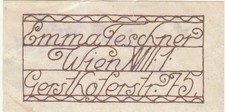 Emma Teschner
Wien XVIII/1.
Gersthoferstr. 75.